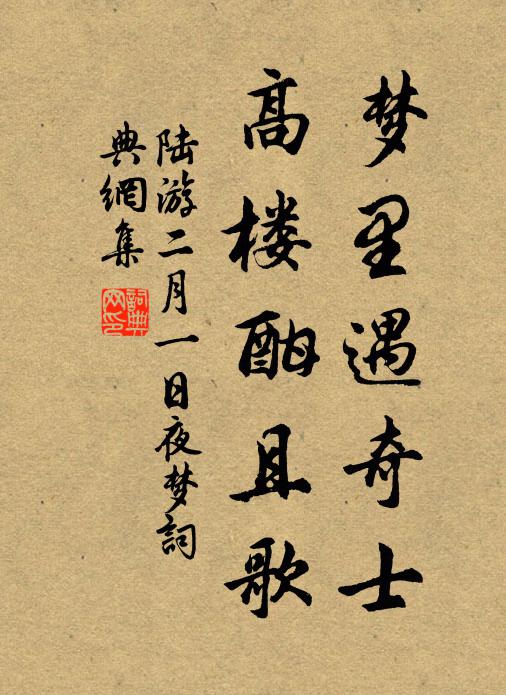 梦里遇奇士
高楼酣且歌
陆游二月一日夜梦詞
典網集
詞典网印